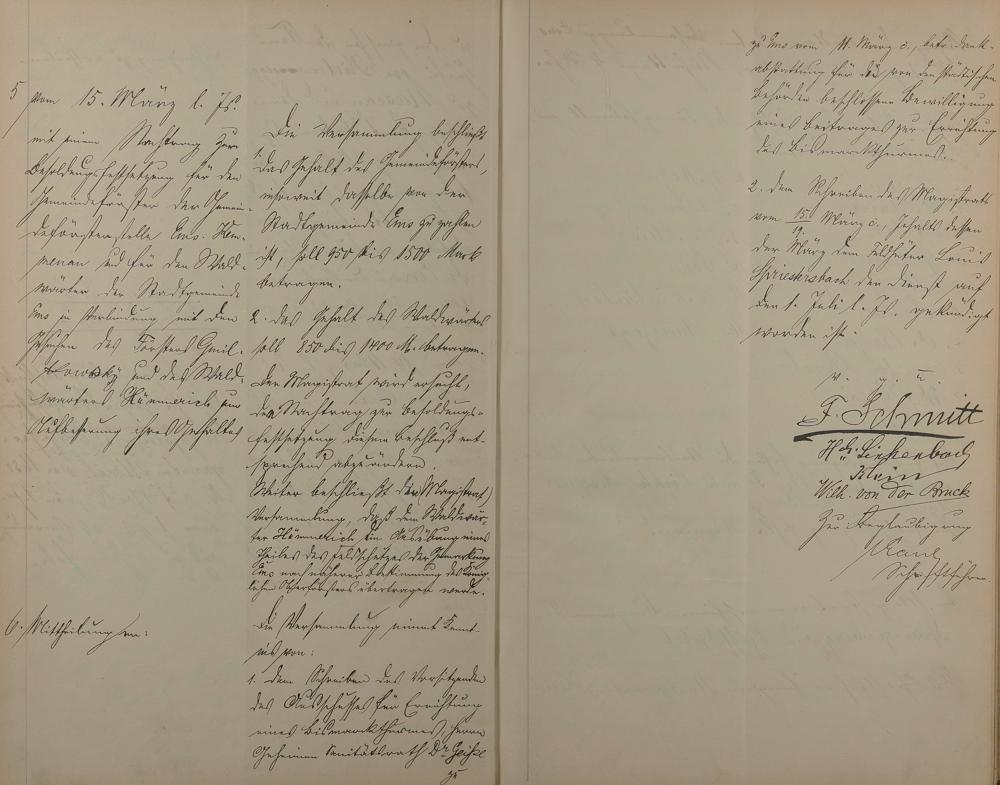 5 vom 15. März l. Js.
mit einem Nachtrag zur
Besoldungsfestsetzung für den
Gemeindeförster der Gemein-
deförsterstelle Ems-Kem-
menau und für den Wald-
wärter der Stadtgemeinde
Ems in Verbindung mit den
Gesuchen des Försters Gmil-
kowsky und des Wald-
wärters Hümmerich um
Aufbesserung ihres Gehaltes
Die Versammlung beschließt
1. das Gehalt des Gemeindeförsters,
insoweit dasselbe von der
Stadtgemeinde Ems zu zahlen
ist, soll 950 bis 1500 Mark
betragen.
2. das Gehalt des Waldwärters
soll 850 bis 1400 M. betragen.
Der Magistrat wird ersucht,
den Nachtrag zur Besoldungs-
festsetzung diesem Beschluß ent-
sprechend abzuändern.
Weiter beschließt die (Magistrat)
Versammlung, daß dem Waldwär-
ter Hümmerich die Ausübung eines
Theiles des Feldschutzes der Gemarkung
Ems nach näherer Bestimmung des König-
lichen Oberförsters übertragen werde.
6. Mittheilungen:
Die Versammlung nimmt Kennt-
nis von:
1. dem Schreiben des Vorsitzenden
des Ausschusses für Errichtung
eines Bismarckthurmes, Herrn
Geheimen Sanitätsrath Dr. Geisse
zu
zu Ems vom 11. März c., betr. Dank-
abstattung für die von den städtischen
Behörden beschlossene Bewilligung
eines Beitrages zur Errichtung
des Bismarckthurmes.
2. dem Schreiben des Magistrats
vom 15./19. März c., Inhalts dessen
der März dem Feldhüter Louis
Spriestersbach den Dienst auf
den 1. Juli l. Js. gekündigt
worden ist
v. g. u.
F. Schmitt
Hch. Linkenbach
Klein
Wilh. von der Bruck
Zur Beglaubigung
Schriftführer